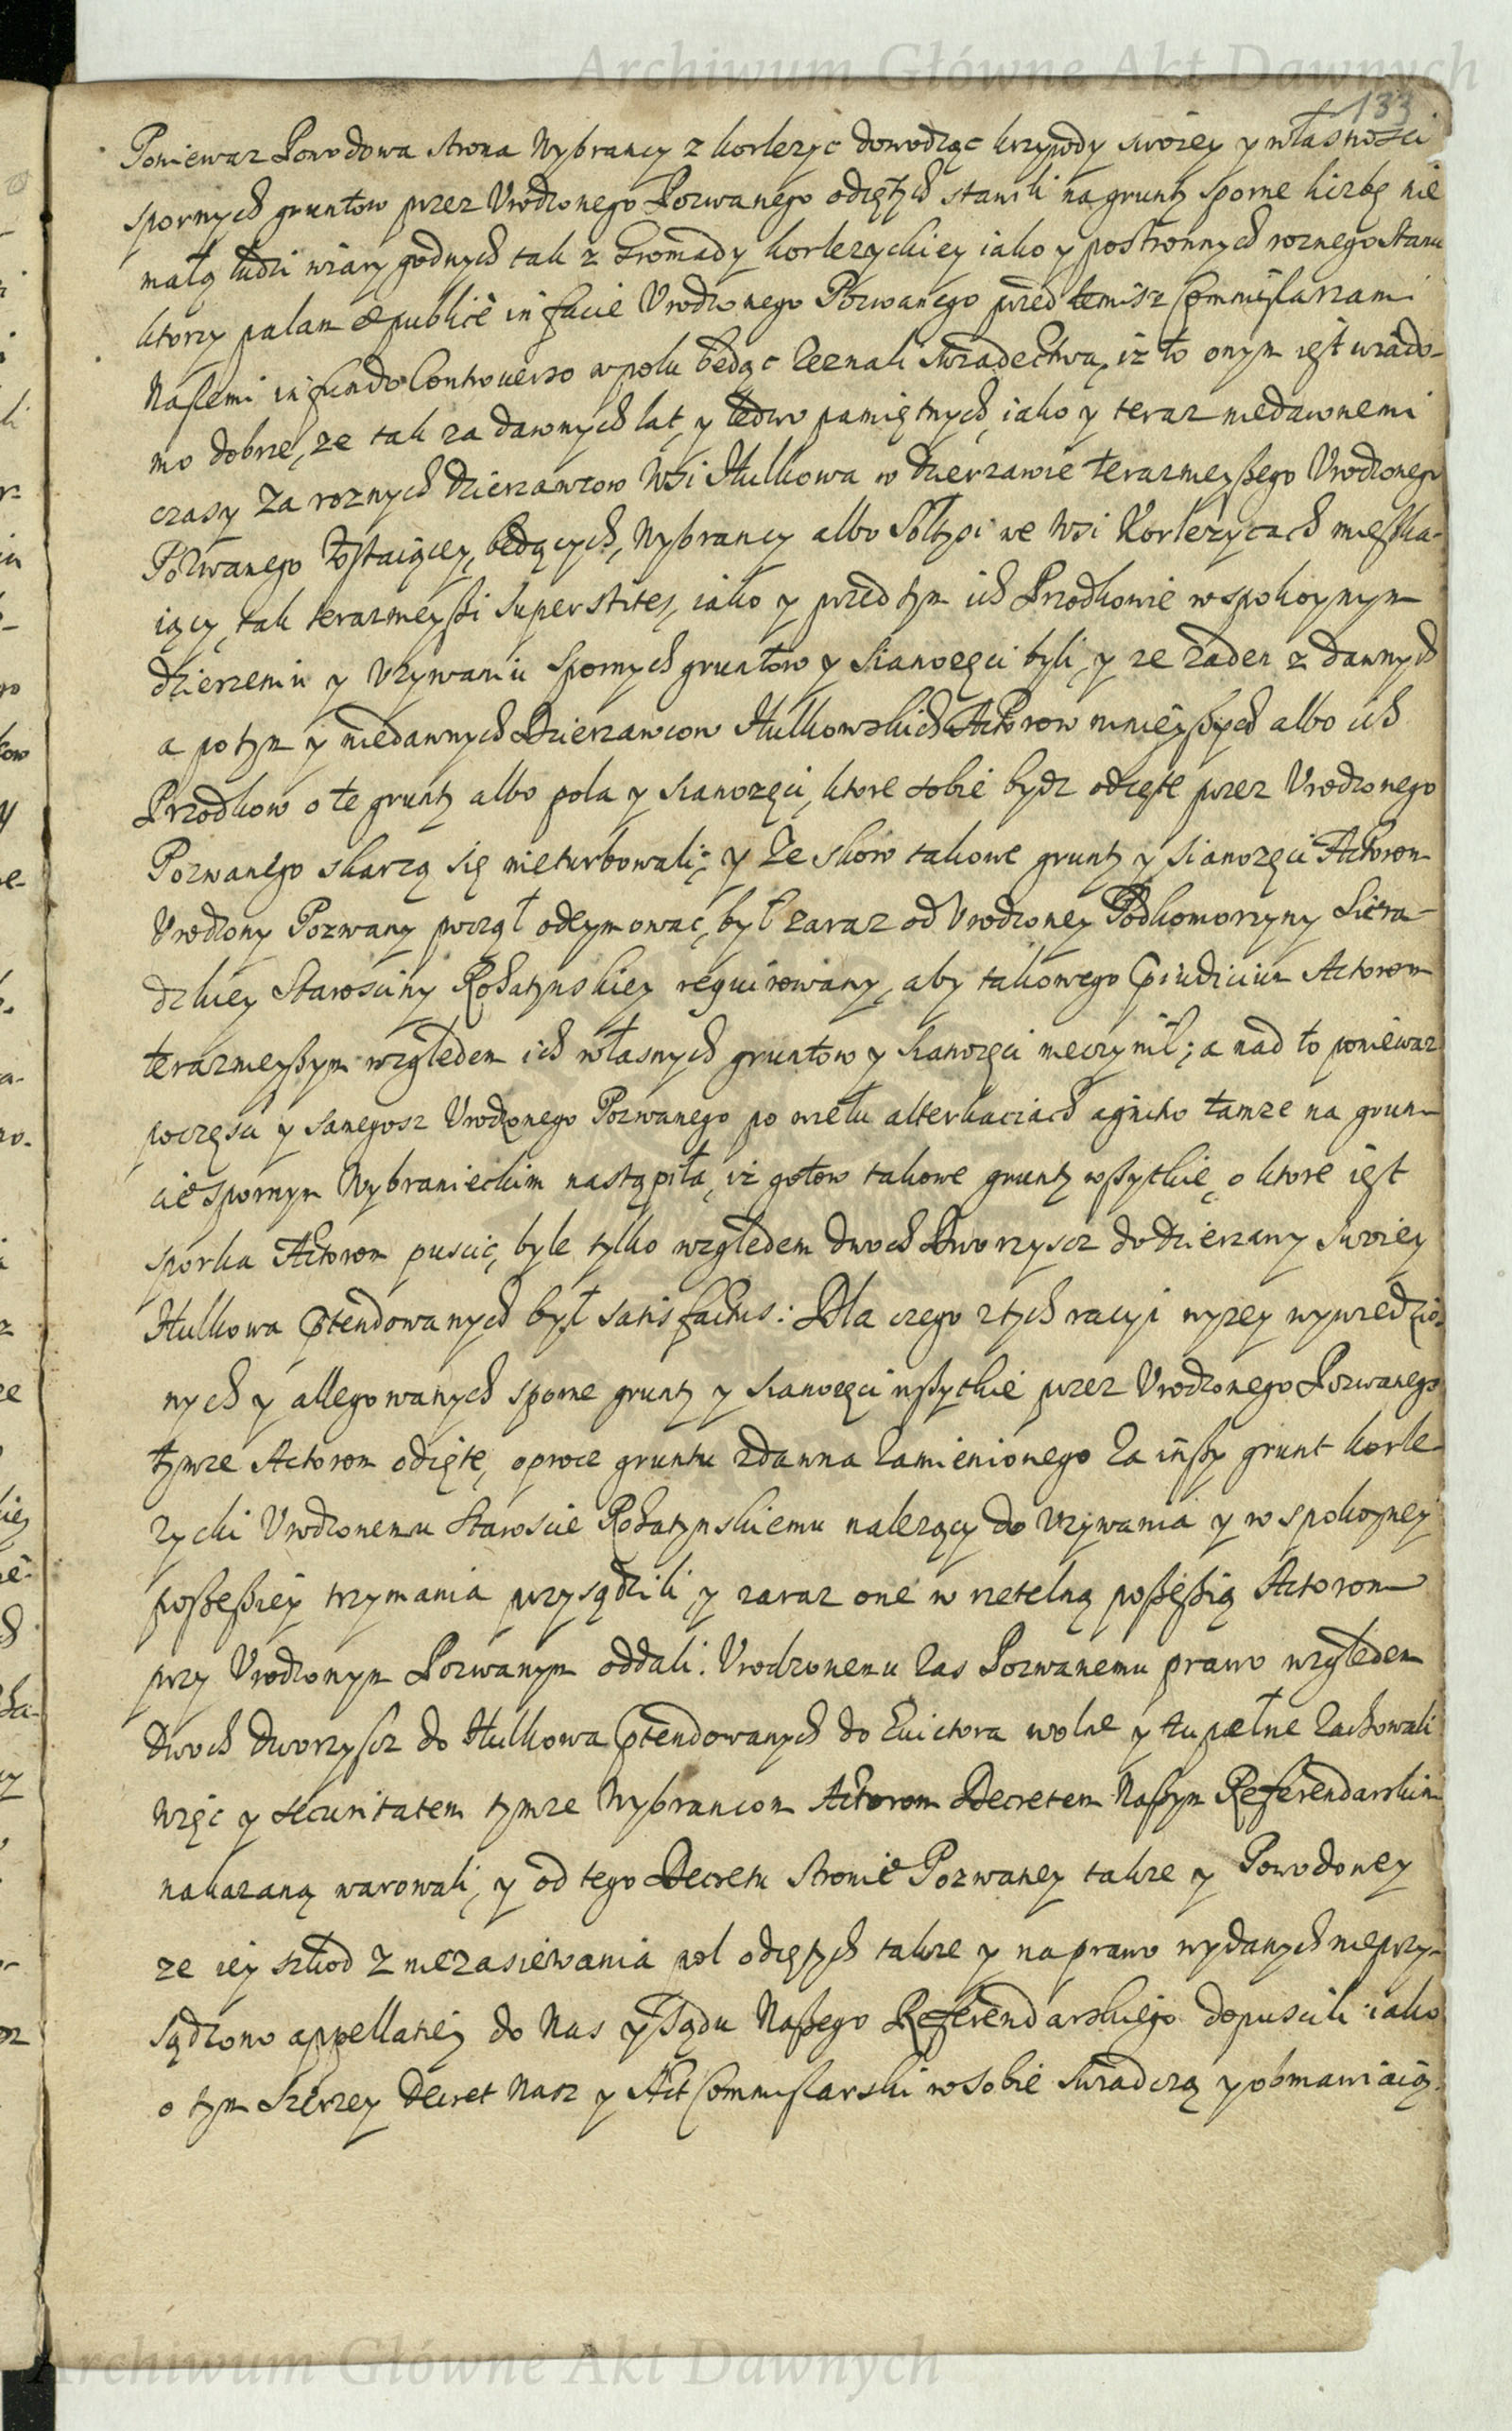 Archiwum Główne Akt Dawnych
133
Poniewaz Powodowa strona Wybrancy z Korlezyc dowodząc krzywdy swoiey y własnosci
spornych gruntow przez Urodzonego Pozwanego odiętych stawili na grunty sporne liczbę nie
małą ludzi wiary godnych tak z Gromady korlezyckiey iako y postronnych roznego stanu
ktorzy palam et publicè in facie Urodzonego Pozwanego przed temisz Commissarzami
Naszemi in fundo Controverso w polu będąc zeznali swiadectwa, iz to onym iest wiado-
mo dobrze, ze tak za dawnych lat, y ledwo pamiętnych, iako y teraz niedawnemi
czasy za roznych dzierzawcow Wsi Hulkowa w dzierzawie teraznieyszego Urodzonego
Pozwanego zostaiącey, będących, Wybrancy albo Sołtysi we Wsi Korlezycach mieszka-
iący, tak teraznieyszi superstites, iako y przed tym ich Przodkowie w spokoynym
dzierzeniu y uzywaniu spornych gruntow y sianozęci byli, y ze zaden z dawnych
a potym y niedawnych Dzierzawcow Hulkowskich Actorow ninieyszych albo ich
Przodkow o te grunty albo pola y sianozęci, ktore sobie bydz odięte przez Urodzonego
Pozwanego skarzą się nieturbowali; y ze skoro takowe grunty y sianozęci Actorom
Urodzony Pozwany począł odeymować, był zaraz od Urodzoney Podkomorzyny Siera-
dzkiey Starosciny Rohatynskiey requirowany, aby takowego Praeiudicium Actorom
teraznieyszym względem ich własnych gruntow y sianozęci nieczynił; a nad to poniewaz
poczęsci y samegosz Urodzonego Pozwanego po wielu alterkaciach agnitio tamze na grun-
cie spornym Wybranieckim nastąpiła, iż gotow takowe grunty wszytkie, o ktore iest
sporka Actorom puscić, byle tylko względem dwoch Dworzyscz do dzierzawy swoiey
Hulkowa praetendowanych był satisfactus: Dla czego z tych racyi wyzey wywiedzio-
nych y allegowanych sporne grunty y sianozęci wszytkie przez Urodzonego Pozwanego
tymze Actorom odięte, oprocz gruntu zdawna zamienionego za inszy grunt korle-
zycki Urodzonemu Staroscie Rohatynskiemu nalezący do uzywania y w spokoyney
possessiey trzymania przysądzili, y zaraz one w rzetelną possessią Actorom
przy Urodzonym Pozwanym oddali. Urodzonemu zas Pozwanemu prawo względem
dwoch dworzyscz do Hulkowa praetendowanych do Evictora wolne y zupełne zachowali
więc y securitatem tymze Wybrancom Actorom Decretem Naszym Referendarskim
nakazaną warowali, y od tego Decretu stronie Pozwaney takze y Powodowey
ze iey szkod z niezasiewania pol odiętych takze y na prawo wydanych nieprzy-
sądzono appellatiey do Nas y Sądu Naszego Referendarskiego dopuscili iako
o tym szerzey Decret Nasz y Act Commissarski w sobie swiadczą y obmawiaią.
Archiwum Główne Akt Dawnych